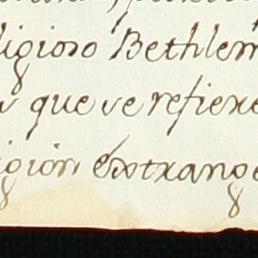 ligioso Bethlem
que se refiere
igion extrange